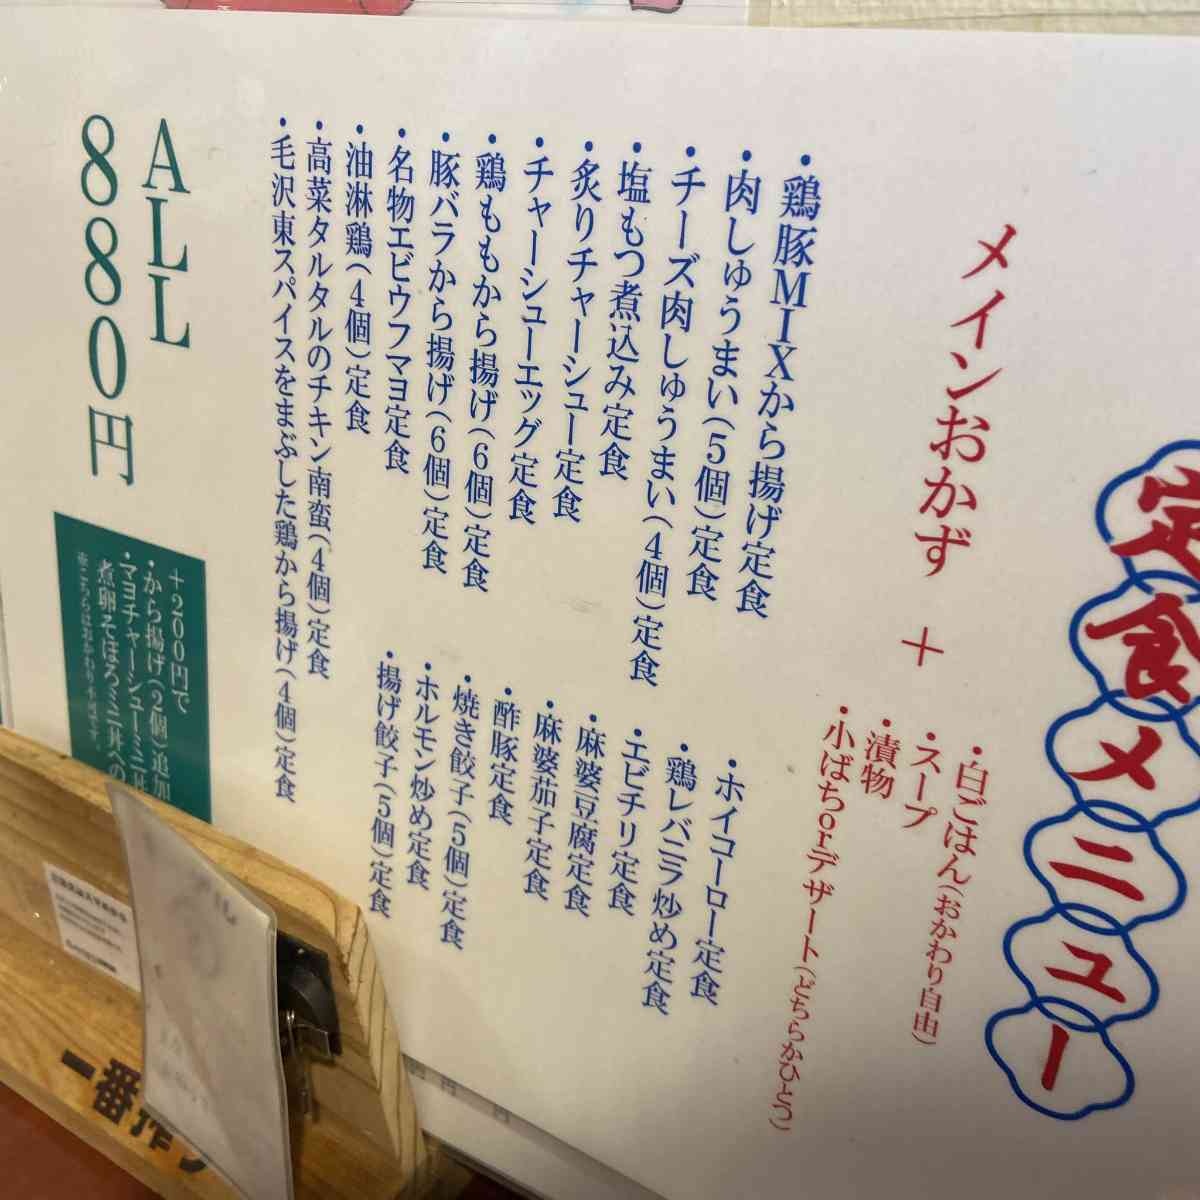 定食メニュー
メインおかず +
・白ごはん(おかわり自由)
・スープ
・漬物
・小ばちorデザート(どちらかひとつ)
・鶏豚MIXから揚げ定食
・肉しゅうまい(5個)定食
・チーズ肉しゅうまい(4個)定食
・塩もつ煮込み定食
・炙りチャーシュー定食
・チャーシューエッグ定食
・鶏ももから揚げ(6個)定食
・豚バラから揚げ(6個)定食
・名物エビウフマヨ定食
・油淋鶏(4個)定食
・高菜タルタルのチキン南蛮(4個)定食
・毛沢東スパイスをまぶした鶏から揚げ(4個)定食
・ホイコーロー定食
・鶏レバニラ炒め定食
・エビチリ定食
・麻婆豆腐定食
・麻婆茄子定食
・酢豚定食
・焼き餃子(5個)定食
・ホルモン炒め定食
・揚げ餃子(5個)定食
ALL
880円
+200円で
・から揚げ(2個)追加
・マヨチャーシューミニ丼
煮卵そぼろミニ丼への
※こちらはおかわり不可です。
一番搾り